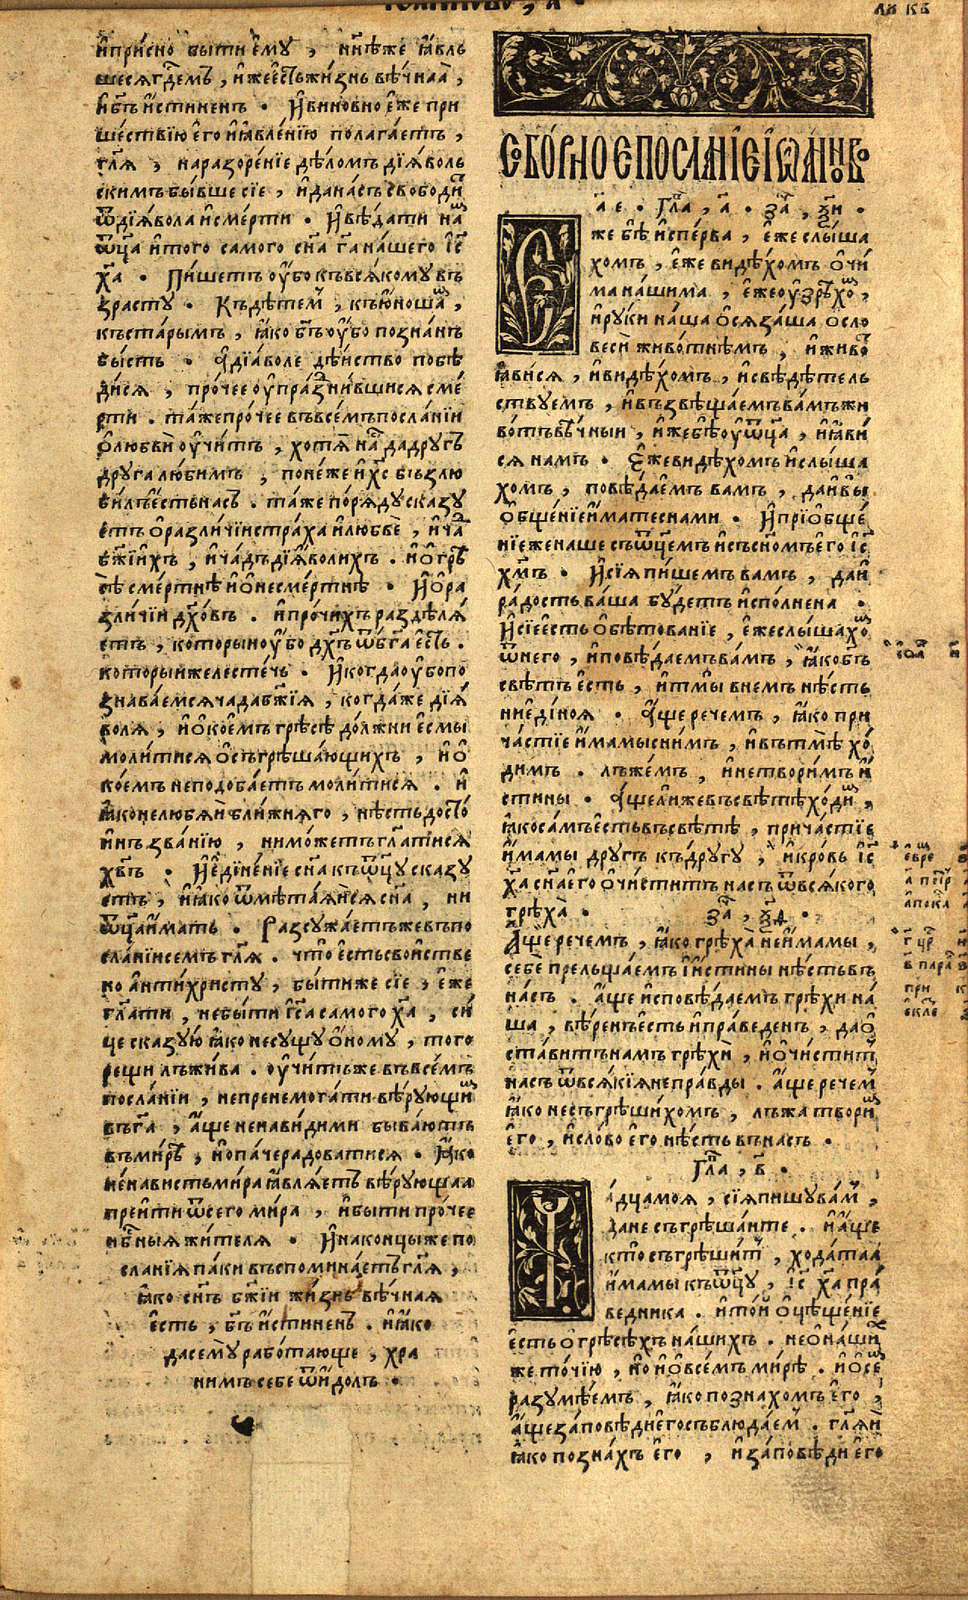 и҆при́сно быти є҆мꙋ̀ , нн҃ѣже ꙗ҆вль
шесѧ гдⷭ҇емъ , и҆же є҆сть жи́знь вѣ́чнаѧ ,
и҆ бг҃ъ и҆стиненъ . И҆ виновно є҆же при
ше́ствїю є҆го и҆ ꙗ҆вле́нїю полага́етъ ,
гл҃ѧ , на разоре́нїе дѣ́ломъ дїѧ́воль
скимъ бы́вше сїе , и҆ да на́съ свободи́тъ
ѿ дїѧ́вола и҆ сме́рти . И҆ вѣ́дати на́мъ
ѿц҃а и҆ того самого сн҃а гⷭ҇а на́шего і҆с
х҃а . Пи́шетъ ᲂу҆бо къ всѧ́комꙋ въ
зрастꙋ . Къ дѣ́темъ , къ ю҆ношамъ ,
къ ста́рымъ , ꙗ҆ко бг҃ъ ᲂу҆бо позна́нъ
бы́сть . а҆ дїа́воле дѣ́йство побѣ
ди́сѧ , про́чее ᲂу҆праздни́вшисѧ сме́
рти . та́же про́чее въ все́мъ посла́нїи
ѻ҆ любвѝ ᲂу҆чи́тъ , хотѧ̀ на́мъ да дрꙋгъ
дрꙋга лю́бимъ , поне́же и҆ хс҃ възлю
би́лъ є҆сть насъ . та́же по́рѧдꙋ сказꙋ
етъ ѻ҆ разли́чїи стра́ха и҆ любвѐ , и҆ ча́дъ
бж҃їихъ , и҆ ча́дъ дїѧ́волихъ . и҆ ѻ҆ грѣ
сѣ сме́ртнѣ и҆ ѻ҆ несме́ртнѣ . И҆ ѻ҆ ра
зли́чїи дх҃о́въ . и҆ про́чихъ раздѣлѧ́
етъ , которыи ᲂу҆бо дх҃ъ ѿ бг҃а є҆сть .
которы́й же лесте́чь . И҆ когда ᲂу҆бо по
знава́емсѧ ча́да бж҃їѧ , когда́ же дїѧ́
волѧ , и҆ ѻ҆ ко́емъ грѣ́сѣ до́лжни є҆смы̀
моли́тисѧ ѻ҆ съгрѣша́ющихъ , и҆ ѻ҆
ко́емъ неподоба́етъ моли́тисѧ . и҆
ꙗ҆ко нелюбѧ́й бли́жнѧго , нѣ́сть досто́
инъ зва́нїю , ни мо́жетъ гла́тисѧ
хв҃ъ . И҆ є҆дине́нїе сн҃а къ ѿц҃ꙋ сказꙋ
етъ , и҆ ꙗ҆ко ѿмѣта́ѧйсѧ сн҃а , ни
ѿц҃а и҆мать . Разсꙋжа́етъ же въ по
сла́нїи се́мъ гл҃ѧ . что́ є҆сть сво́йстве
но анти́христꙋ , бы́ти же сїе , є҆же
гл҃ати , не бы́ти і҆с҃а самого х҃а , си
це сказꙋю ꙗ҆ко не сꙋщꙋ ѻ҆номꙋ , того
рещи лъжи́ва . ᲂу҆чи́тъ же въ все́мъ
посла́нїи , непренемога́ти вѣ́рꙋющимъ
въ гⷭ҇а , а҆ще ненави́дими быва́ютъ
въ ми́рѣ , и҆ но па́че ра́доватисѧ . ꙗ҆ко
не́нависть ми́ра ꙗ҆влѧ́етъ вѣ́рꙋющаѧ
прейти ѿ сего ми́ра , и҆ бы́ти про́чее
нбⷭ҇ныѧ жи́телѧ . И҆ на концы́ же по
сла́нїѧ па́ки въспомина́етъ гл҃ѧ ,
ꙗ҆ко сн҃ъ бж҃їи жи́знь вѣ́чнаѧ
є҆сть , бг҃ъ и҆стиненъ . и҆ ꙗ҆ко
да семꙋ̀ рабо́тающе , хра
нимъ себе ѿ и҆долъ .
ли кв
Събо́рное посла́нїе і҆ѡа́нново
а҃ е . Гла́ , а҃ . за , ѯ҃и .
Є҆же бѣ̀ и҆спе́рва , є҆же слы́ша
хомъ , є҆же видѣ́хомъ ѻ҆чи́
ма на́шима , є҆же ᲂу҆зрѣ́хомъ ,
и҆ рꙋки на́ша ѻ҆сѧза́ша ѻ҆ сло
весѝ живо́тнѣмъ , и҆ живо́тъ
ꙗ҆ви́сѧ , и҆ видѣ́хомъ , и҆ свѣдѣ́тель
ствꙋемъ , и҆ възвѣща́емъ ва́мъ жи
во́тъ вѣ́чныи , и҆же бѣ̀ ᲂу҆ ѿц҃а , и҆ ꙗ҆ви́
сѧ намъ . Є҆же видѣ́хомъ и҆ слы́ша
хомъ , повѣ́даемъ вамъ , да и҆ вы̀
ѻ҆бще́нїе и҆мате с на́ми . И҆ прїѻбще́
нїе же наше съ ѿц҃емъ и҆ съ сн҃омъ є҆го і҆с҃
хм҃ъ . И҆ сїѧ пи́шемъ вамъ , да и҆
ра́дость ва́ша бꙋ́детъ и҆спо́лнена .
И҆ сїе є҆сть ѻ҆бѣтова́нїе , є҆же слы́шахомъ
ѿ него , и҆ повѣ́даемъ ва́мъ , ꙗ҆ко бг҃ъ
свѣтъ є҆сть , и҆ тмы̀ в немъ нѣ́сть
ни є҆ди́ноѧ . А҆ще рече́мъ , ꙗ҆ко при
ча́стїе и҆мамы с ни́мъ , и҆ въ тмѣ̀ хо́
димъ . лъже́мъ , и҆ не твори́мъ и҆
стины . а҆ще ли́ же въ свѣ́тѣ хо́димъ ,
ꙗ҆ко са́мъ є҆сть въ свѣ́тѣ , прича́стїе
и҆мамы дрꙋгъ къ дрꙋгꙋ , и҆ кро́вь і҆с҃
х҃а сн҃а є҆го ѻ҆чи́ститъ насъ ѿ всѧ́кого
грѣха̀ . за , ѯ҃д .
А҆ще рече́мъ , ꙗ҆ко грѣха̀ не и҆мамы ,
себѐ прельща́емъ и҆ и҆стины нѣ́сть въ
на́съ . а҆ще и҆сповѣ́даемъ грѣхи на́
ша , вѣ́ренъ є҆сть и҆ пра́веденъ , да ѻ҆
ста́витъ намъ грѣхѝ , и҆ ѻ҆чи́ститъ
насъ ѿ всѧ́кїѧ непра́вды . а҆ще рече́мъ
ꙗ҆ко несъгрѣши́хомъ , лъжа твори́мъ
є҆го , и҆ сло́во є҆го нѣ́сть въ насъ .
Гла́ , в҃ .
Ча́дца моѧ , сїѧ пишꙋ ва́мъ ,
да не съгрѣша́ите . и҆ а҆ще
кто̀ съгрѣши́тъ , хода́таѧ
и҆мамы къ ѿц҃ꙋ , і҆с҃ х҃а пра́
ведника . и҆ то́й ѻ҆цѣще́нїе
є҆сть ѻ҆ грѣсѣ́хъ на́шихъ . не ѻ҆ на́шихъ
же то́чїю , но и҆ ѻ҆ все́мъ ми́рѣ . и҆ ѻ҆ се́мъ
разꙋмѣ́емъ , ꙗ҆ко позна́хомъ є҆го ,
а҆ще за́повѣди є҆го съблюда́емъ . гл҃ѧи
ꙗ҆ко позна́хъ є҆го , и҆ за́повѣди є҆го
і҆ѡа҃
евре
а҃ петр
апока
г҃ цр
в҃ пара
при
екле